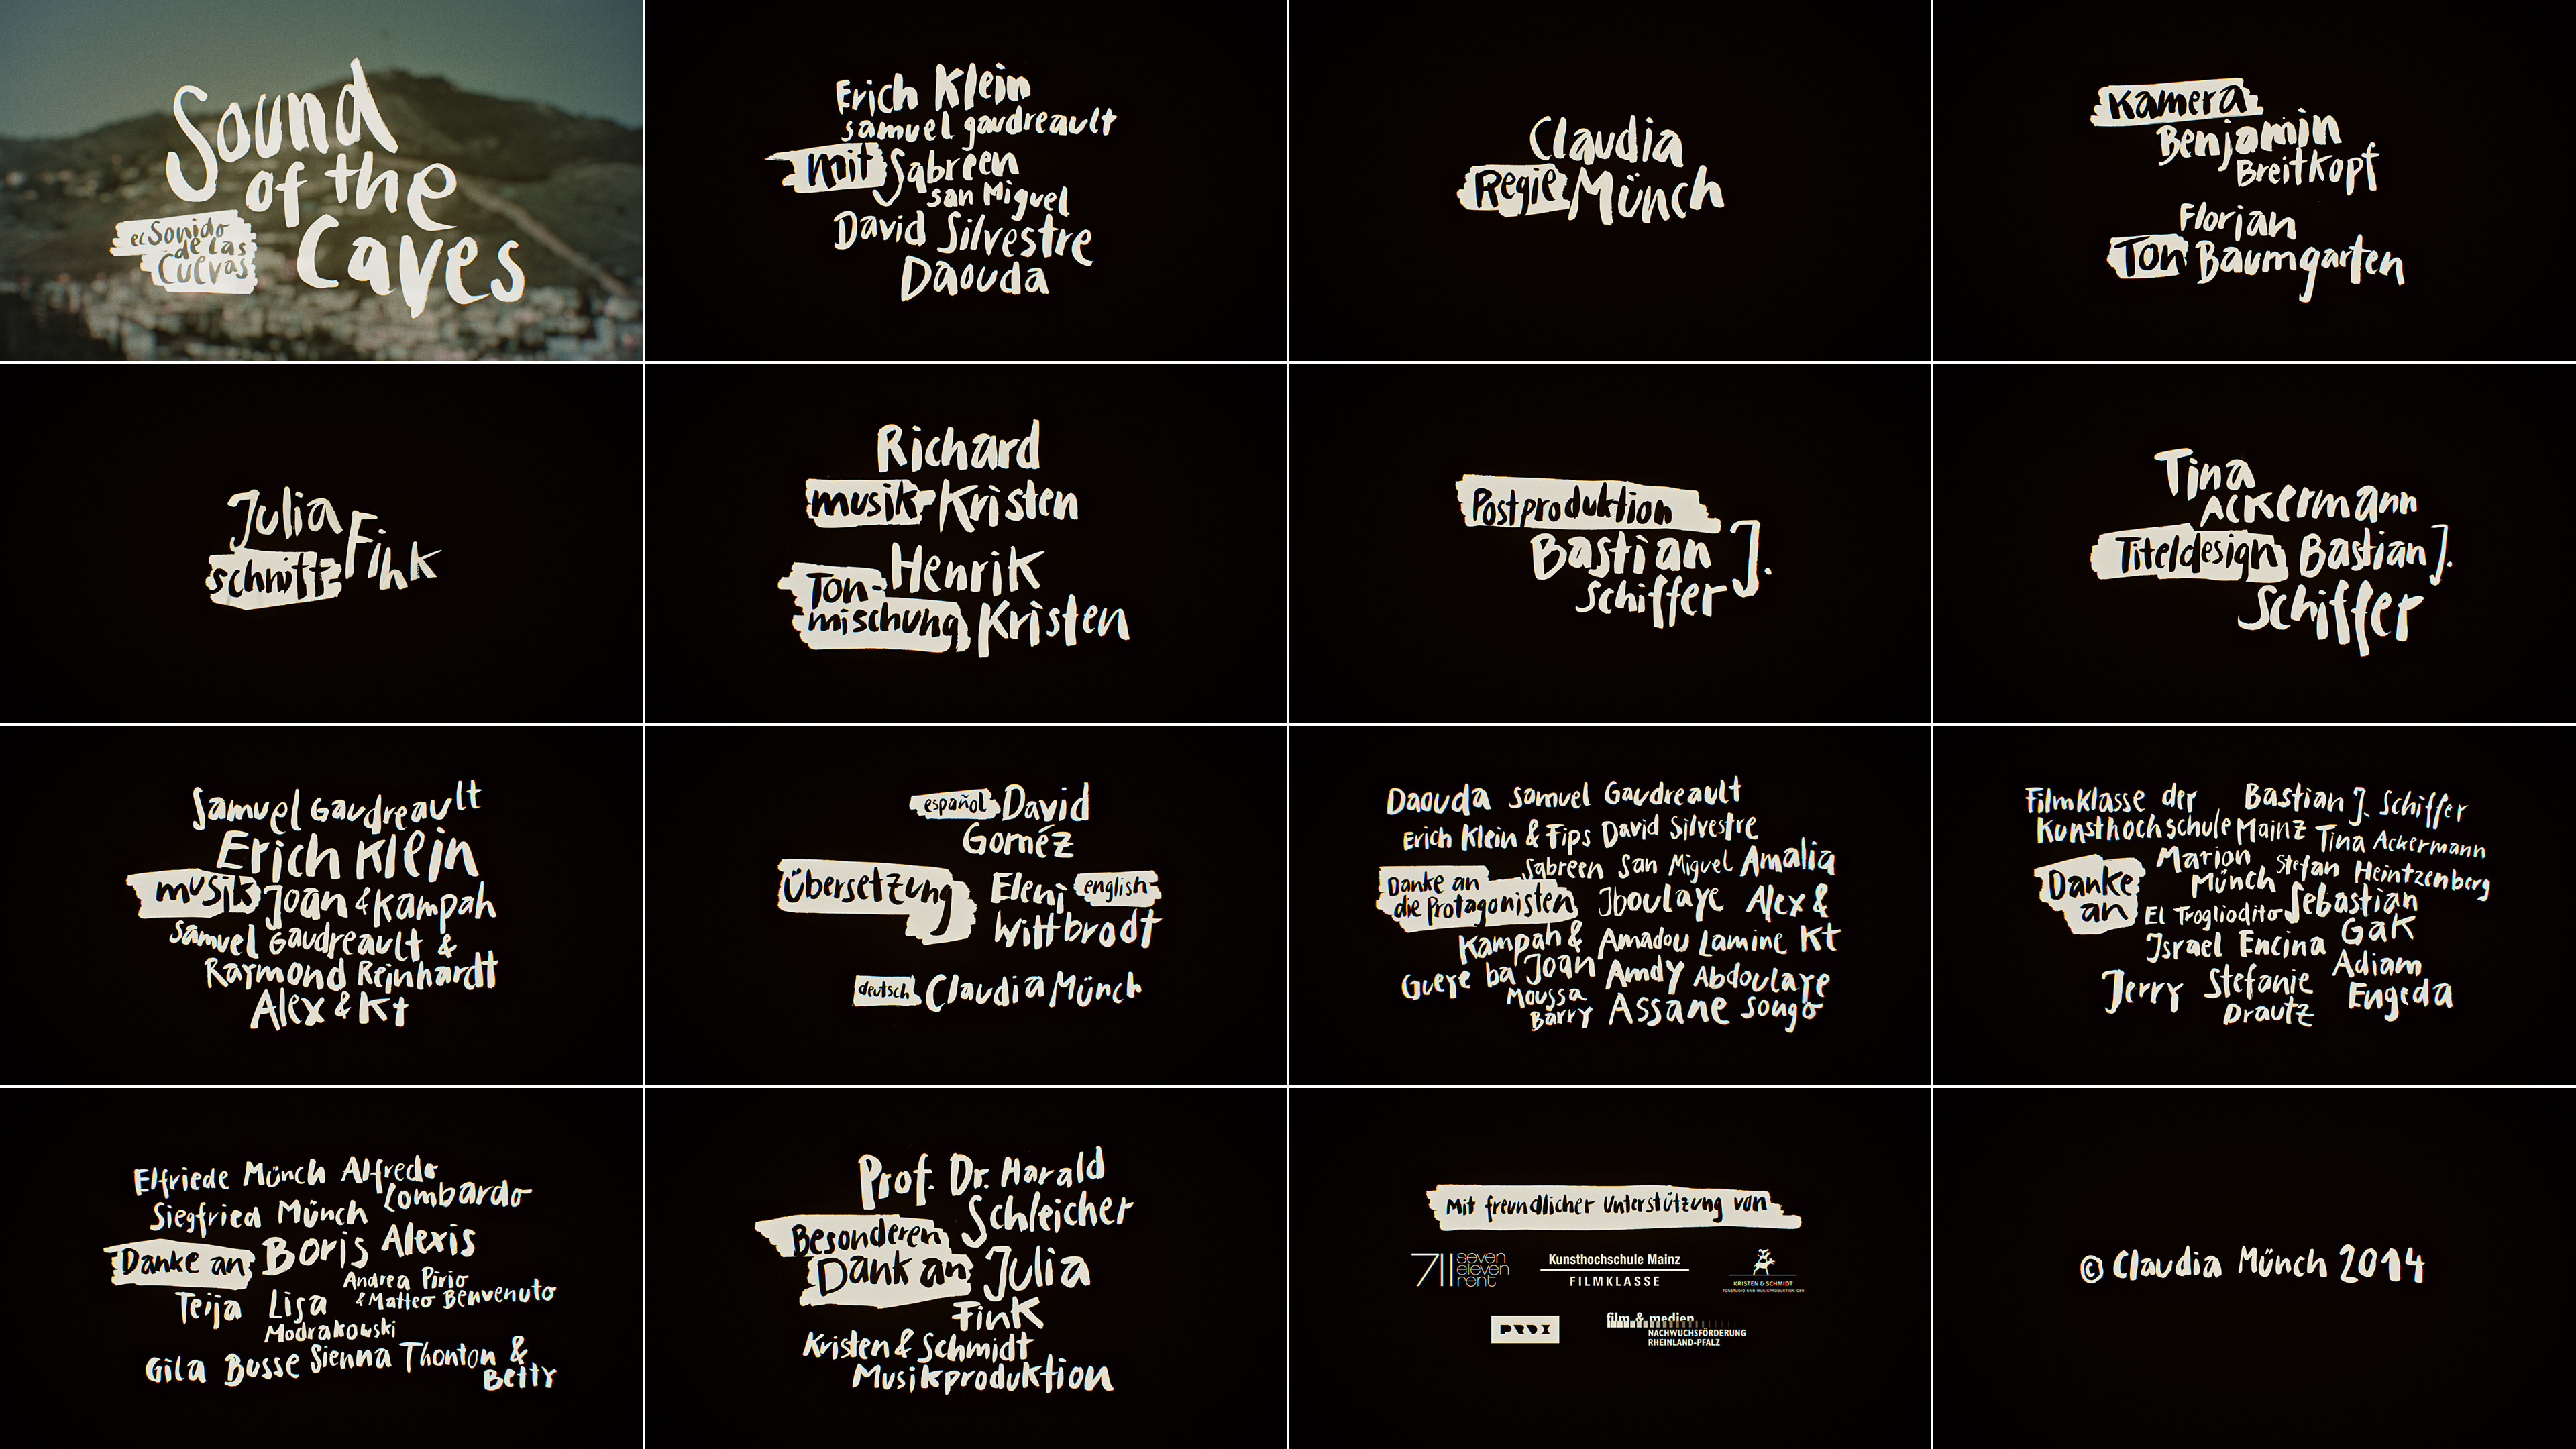 Sound
of the
Caves
el Sonido
de las
Cuevas
Erich Klein
samuel gaudreault
mit Sabreen
san Miguel
David Silvestre
Daouda
Claudia
Regie Münch
Kamera
Benjamin
Breitkopf
Florian
Ton Baumgarten
Julia
schnitt Fink
Richard
musik Kristen
Henrik
Ton-
mischung Kristen
Postproduktion
Bastian J.
Schiffer
Tina
Ackermann
Titeldesign Bastian J.
Schiffer
Samuel Gaudreault
Erich Klein
musik Joan & Kampah
Samuel Gaudreault &
Raymond Reinhardt
Alex & Kt
español David
Goméz
Übersetzung Eleni english-
Wittbrodt
deutsch Claudia Münch
Daouda Samuel Gaudreault
Erich Klein & Fips David Silvestre
Sabreen San Miguel Amalia
Danke an
die Protagonisten Iboulaye Alex &
Kampah & Amadou Lamine Kt
Gueye ba Joan Amdy Abdoulaye
Moussa
Barry Assane Songo
Filmklasse der Bastian J. Schiffer
Kunsthochschule Mainz Tina Ackermann
Marion Stefan Heintzenberg
Münch Sebastian
Danke
an El Trogliodito GaK
Israel Encina Adiam
Jerry Stefanie Engeda
Drautz
Elfriede Münch Alfredo
Lombardo
Siegfried Münch
Danke an Boris Alexis
Andrea Pirio
Teija Lisa & Matteo Benvenuto
Modrakowski
Gila Busse Sienna Thonton &
Betty
Prof. Dr. Harald
Schleicher
Besonderen
Dank an Julia
Fink
Kristen & Schmidt
Musikproduktion
Mit freundlicher Unterstützung von
711 seven
eleven
rent
Kunsthochschule Mainz
FILMKLASSE
KRISTEN & SCHMIDT
TONSTUDIO UND MUSIKPRODUKTION GBR
film & medien
NACHWUCHSFÖRDERUNG
RHEINLAND-PFALZ
© Claudia Münch 2014